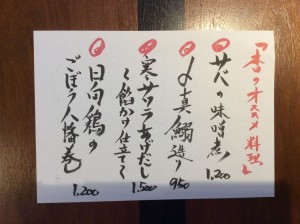 「本日のオススメ料理」
サバの味噌煮
1,200
〆真鰯造り
950
寒サワラあげだし
〜餡かけ仕立て〜
1,500
日向鶏の
ごぼう八幡巻
1,200